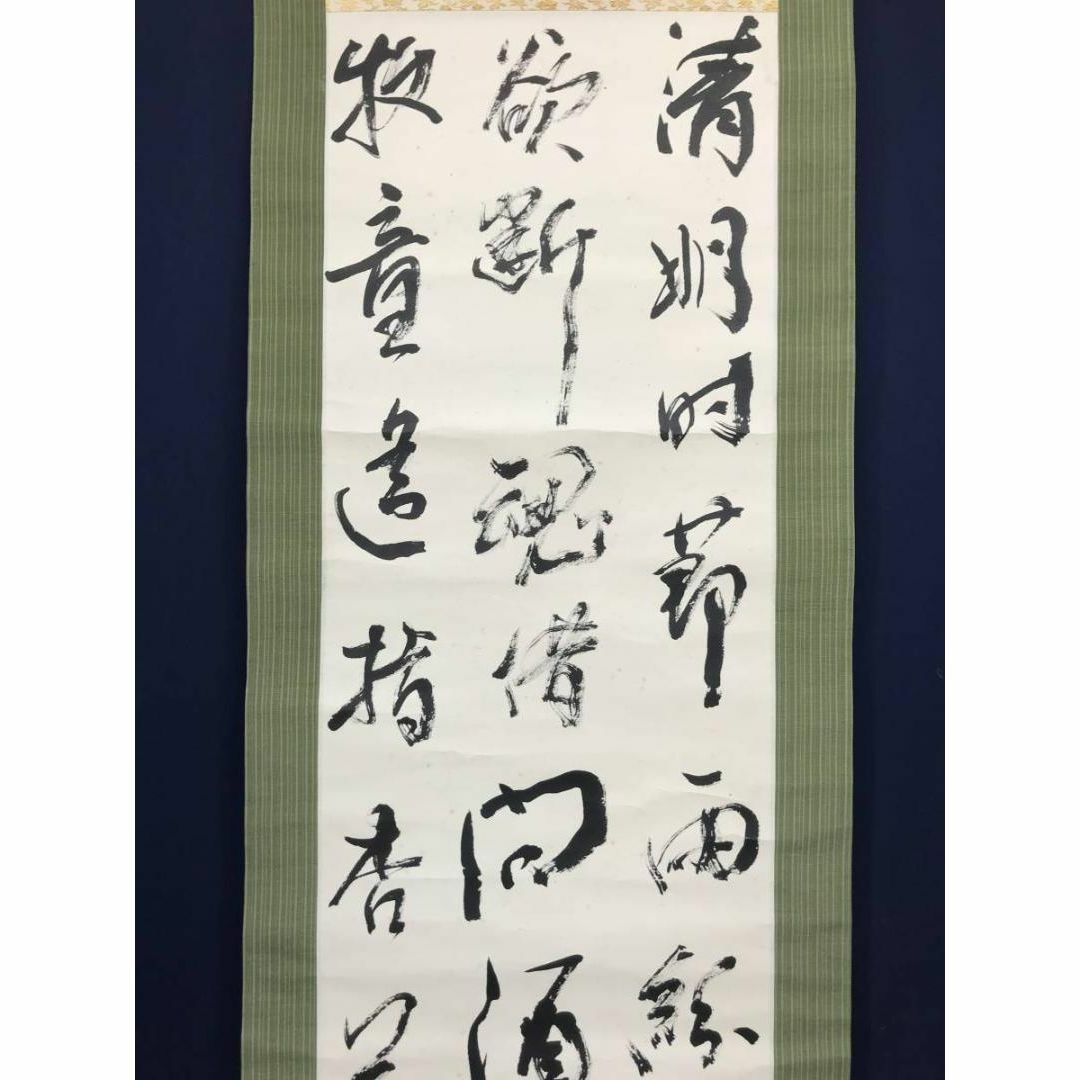 清明時節雨紛
欲断魂借問酒
牧童遥指杏